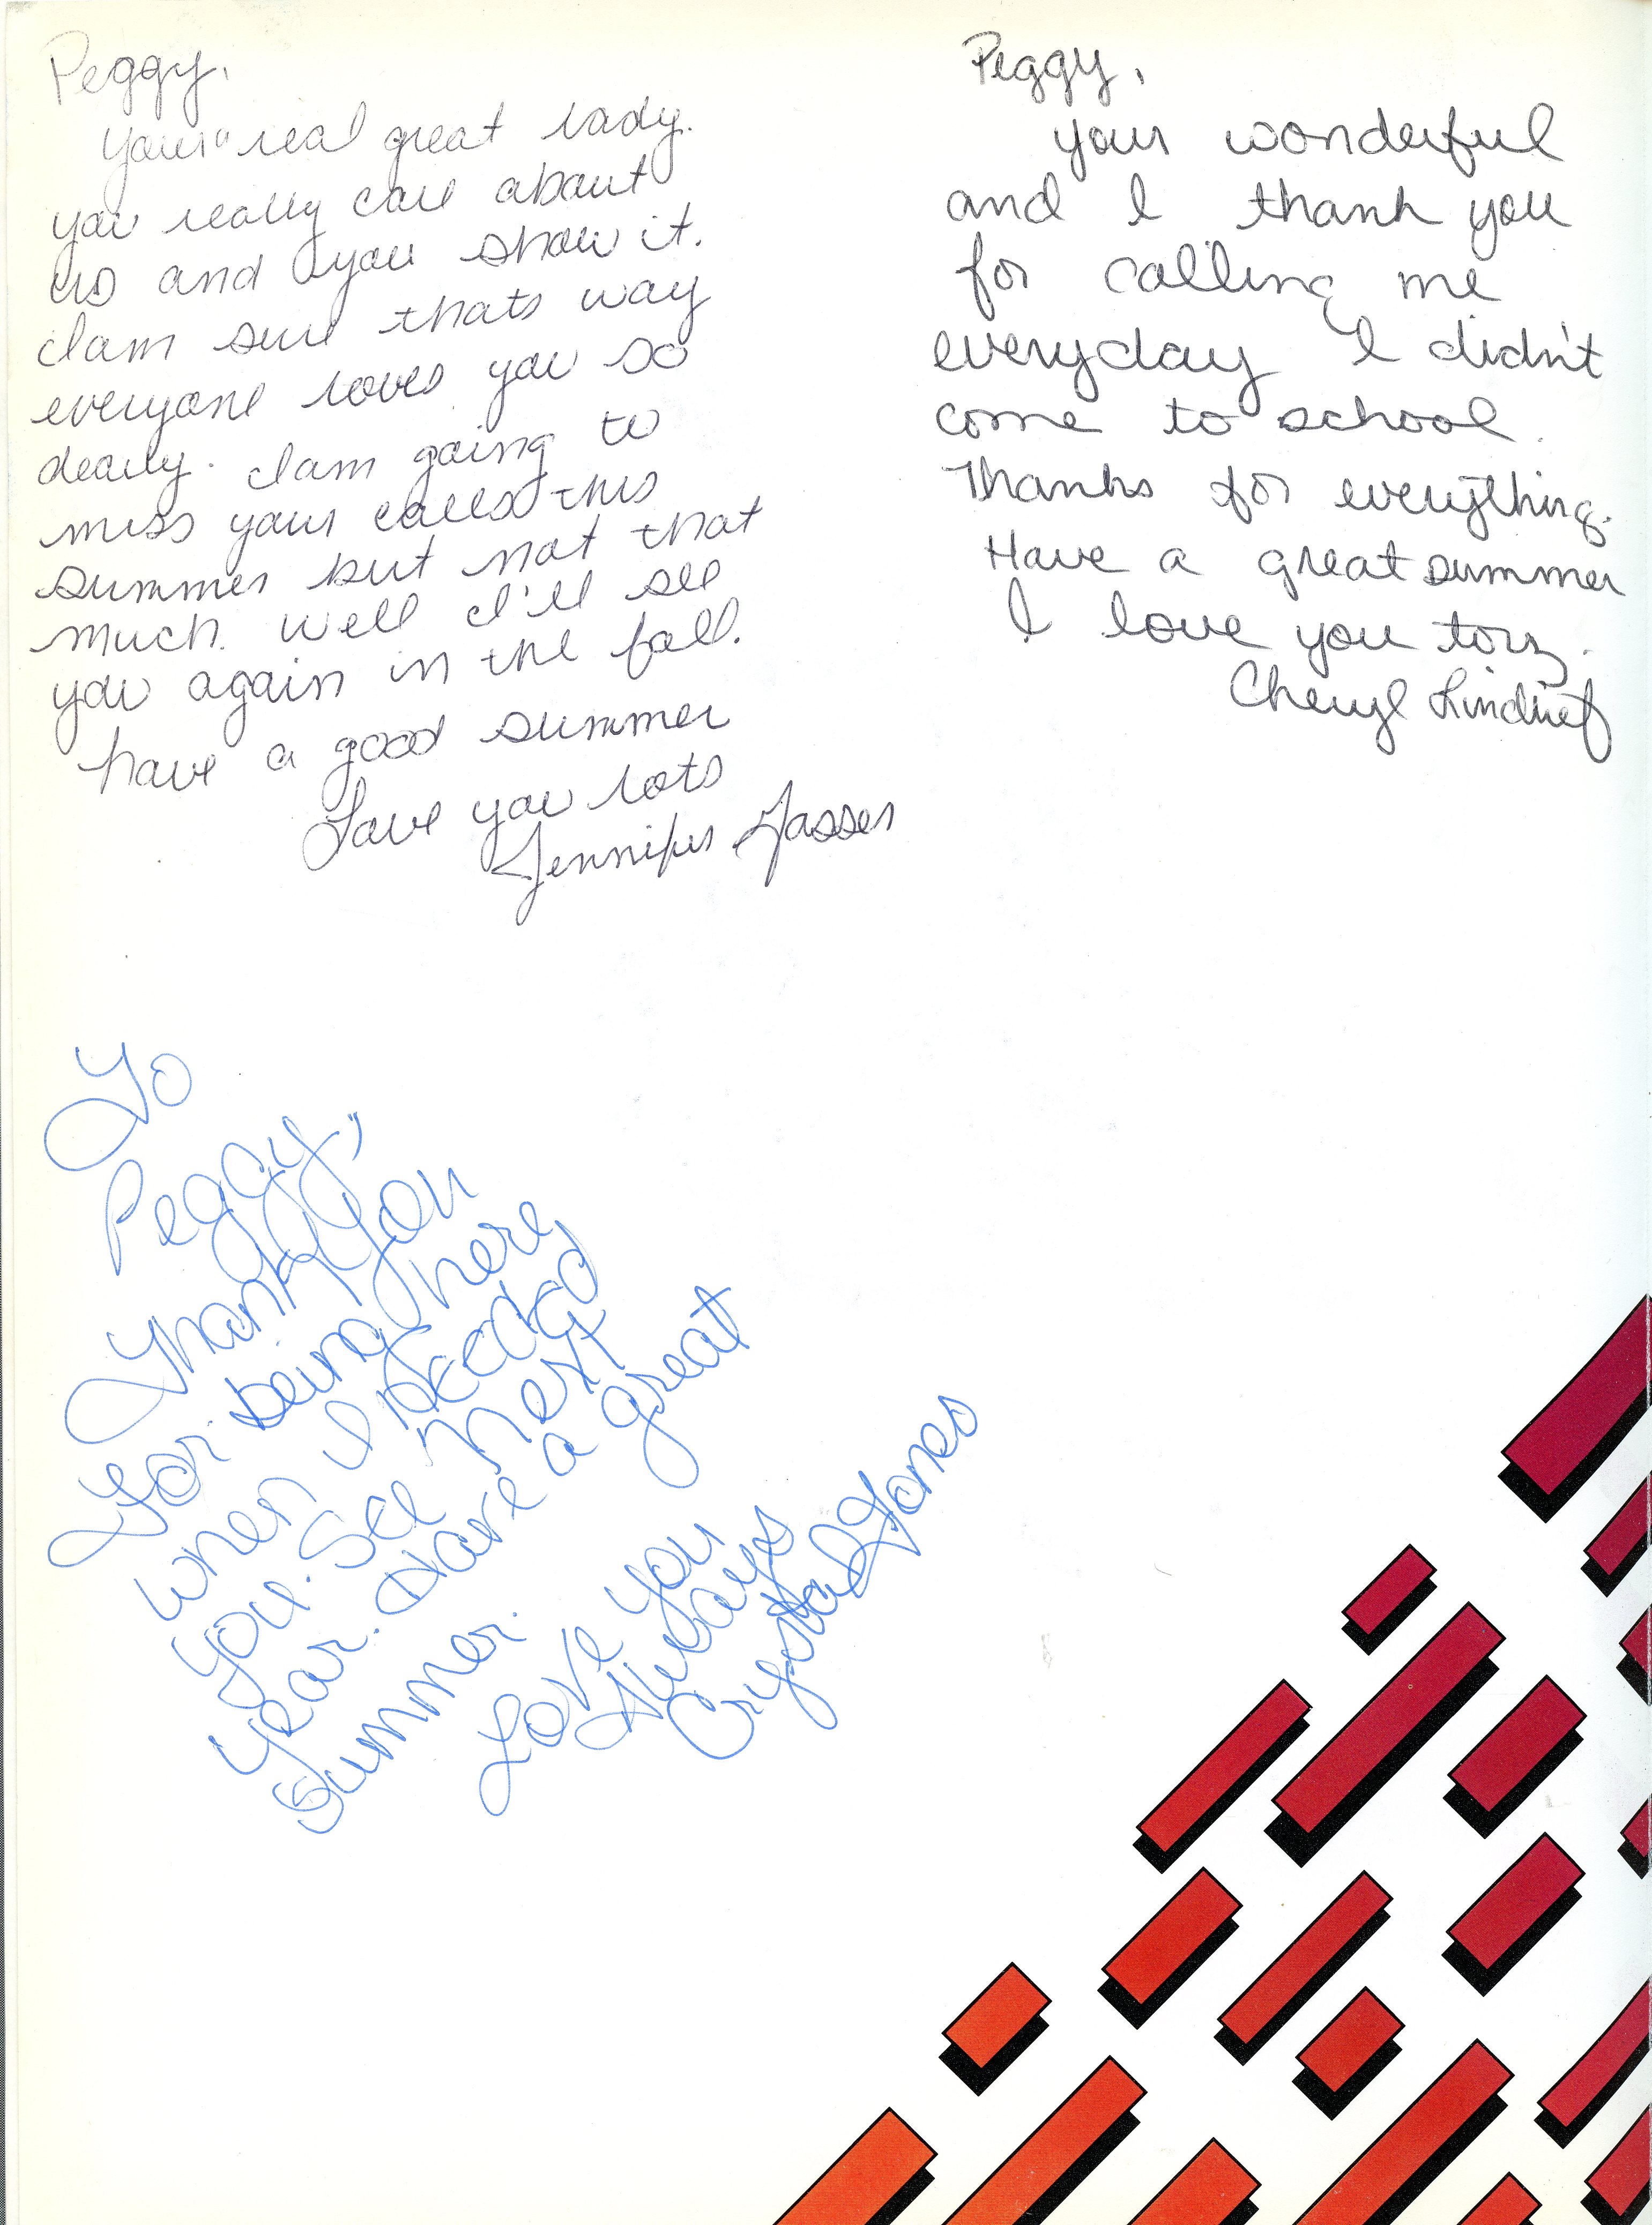 Peggy,
Your a real great lady.
you really care about
us and you show it.
I am sure thats way
everyone loves you so
dearly. I am going to
miss your calls this
summer but not that
much. Well I'll see
you again in the fall.
have a good summer
Love you lots
Jennifer
Peggy,
your wonderful
and I thank you
for calling me
everyday I didn't
come to school.
Thanks for everything.
Have a great summer
I love you
Cheryl
To
Peggy,
Thank You
For being here
when I needed
you. See Next
Year. Have a great
Summer.
Love You
Always
Crystal Jones